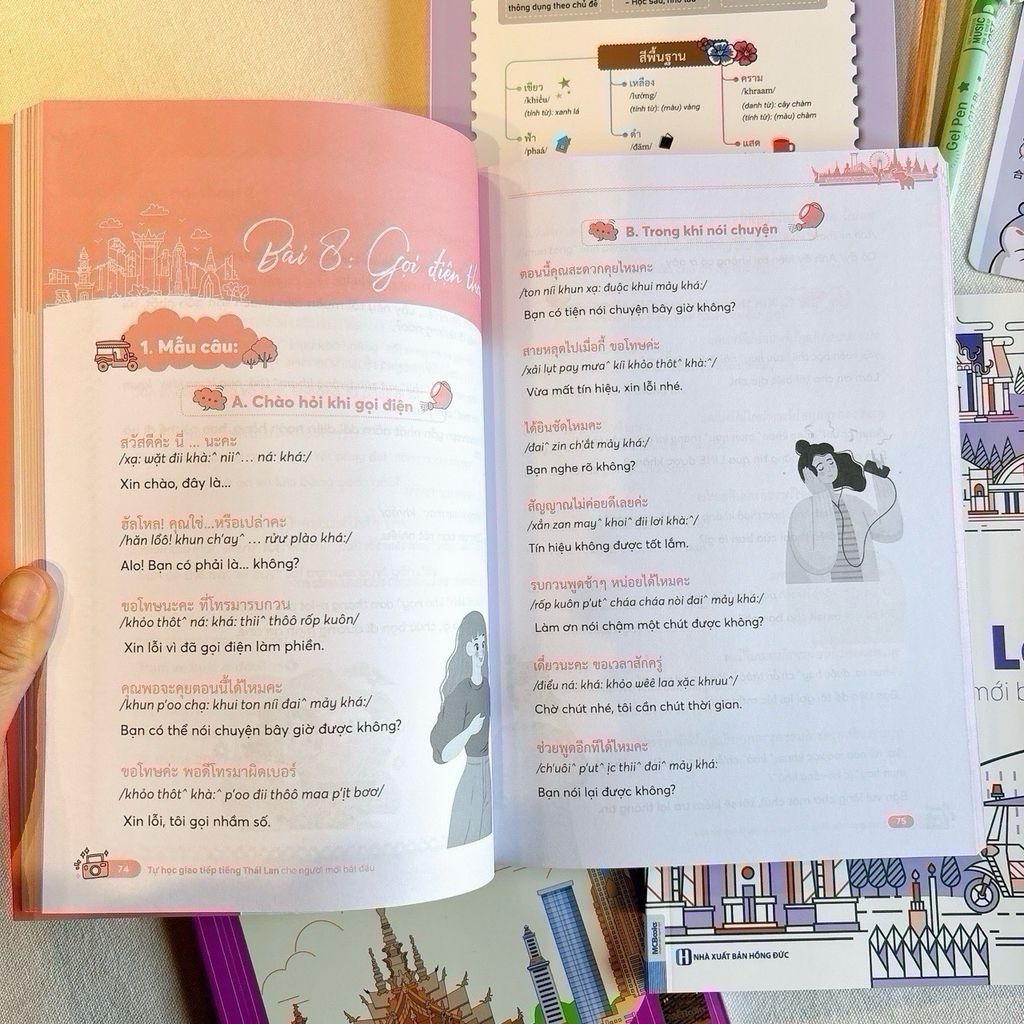 thông dụng theo chủ đề
สีพื้นฐาน
เขียว
/khiều/
(tính từ): xanh lá
ฟ้า
/phaá/
เหลือง
/lường/
(tính từ): (màu) vàng
ดำ
/đăm/
คราม
/khraam/
(danh từ): cây chàm
(tính từ): (màu) chàm
แสด
Gel Pen
MUSIC
Bài 8: Gọi điện
1. Mẫu câu:
A. Chào hỏi khi gọi điện
สวัสดีค่ะ นี่ ... นะคะ
/xạ: wặt đii khà:^ nii^... ná: khá:/
Xin chào, đây là...
ฮัลโหล! คุณใช่...หรือเปล่าคะ
/hăn lổô! khun ch'ay^ ... rửư plào khá:/
Alo! Bạn có phải là... không?
ขอโทษนะคะ ที่โทรมารบกวน
/khỏo thôt^ ná: khá: thii^ thôô rốp kuôn/
Xin lỗi vì đã gọi điện làm phiền.
คุณพอจะคุยตอนนี้ได้ไหมคะ
/khun p'oo chạ: khui ton níi đai^ mảy khá:/
Bạn có thể nói chuyện bây giờ được không?
ขอโทษค่ะ พอดีโทรมาผิดเบอร์
/khỏo thôt^ khà:^ p'oo đii thôô maa p'ịt bơơ/
Xin lỗi, tôi gọi nhầm số.
74
Tự học giao tiếp tiếng Thái Lan cho người mới bắt đầu
B. Trong khi nói chuyện
ตอนนี้คุณสะดวกคุยไหมคะ
/ton níi khun xạ: đuộc khui mảy khá:/
Bạn có tiện nói chuyện bây giờ không?
สายหลุดไปเมื่อกี้ ขอโทษค่ะ
/xải lụt pay mưa^ kíi khỏo thôt^ khà:^/
Vừa mất tín hiệu, xin lỗi nhé.
ได้ยินชัดไหมคะ
/đai^ zin ch'ắt mảy khá:/
Bạn nghe rõ không?
สัญญาณไม่ค่อยดีเลยค่ะ
/xẳn zan may^ khoi^ đii lơi khà:^/
Tín hiệu không được tốt lắm.
รบกวนพูดช้าๆ หน่อยได้ไหมคะ
/rốp kuôn p'ut^ cháa cháa nòi đai^ mảy khá:/
Làm ơn nói chậm một chút được không?
เดี๋ยวนะคะ ขอเวลาสักครู่
/điểu ná: khá: khỏo wêê laa xặc khruu^/
Chờ chút nhé, tôi cần chút thời gian.
ช่วยพูดอีกทีได้ไหมคะ
/ch'uôi^ p'ut^ ịc thii^ đai^ mảy khá:
Bạn nói lại được không?
75
mới b
MCBooks
NHÀ XUẤT BẢN HỒNG ĐỨC